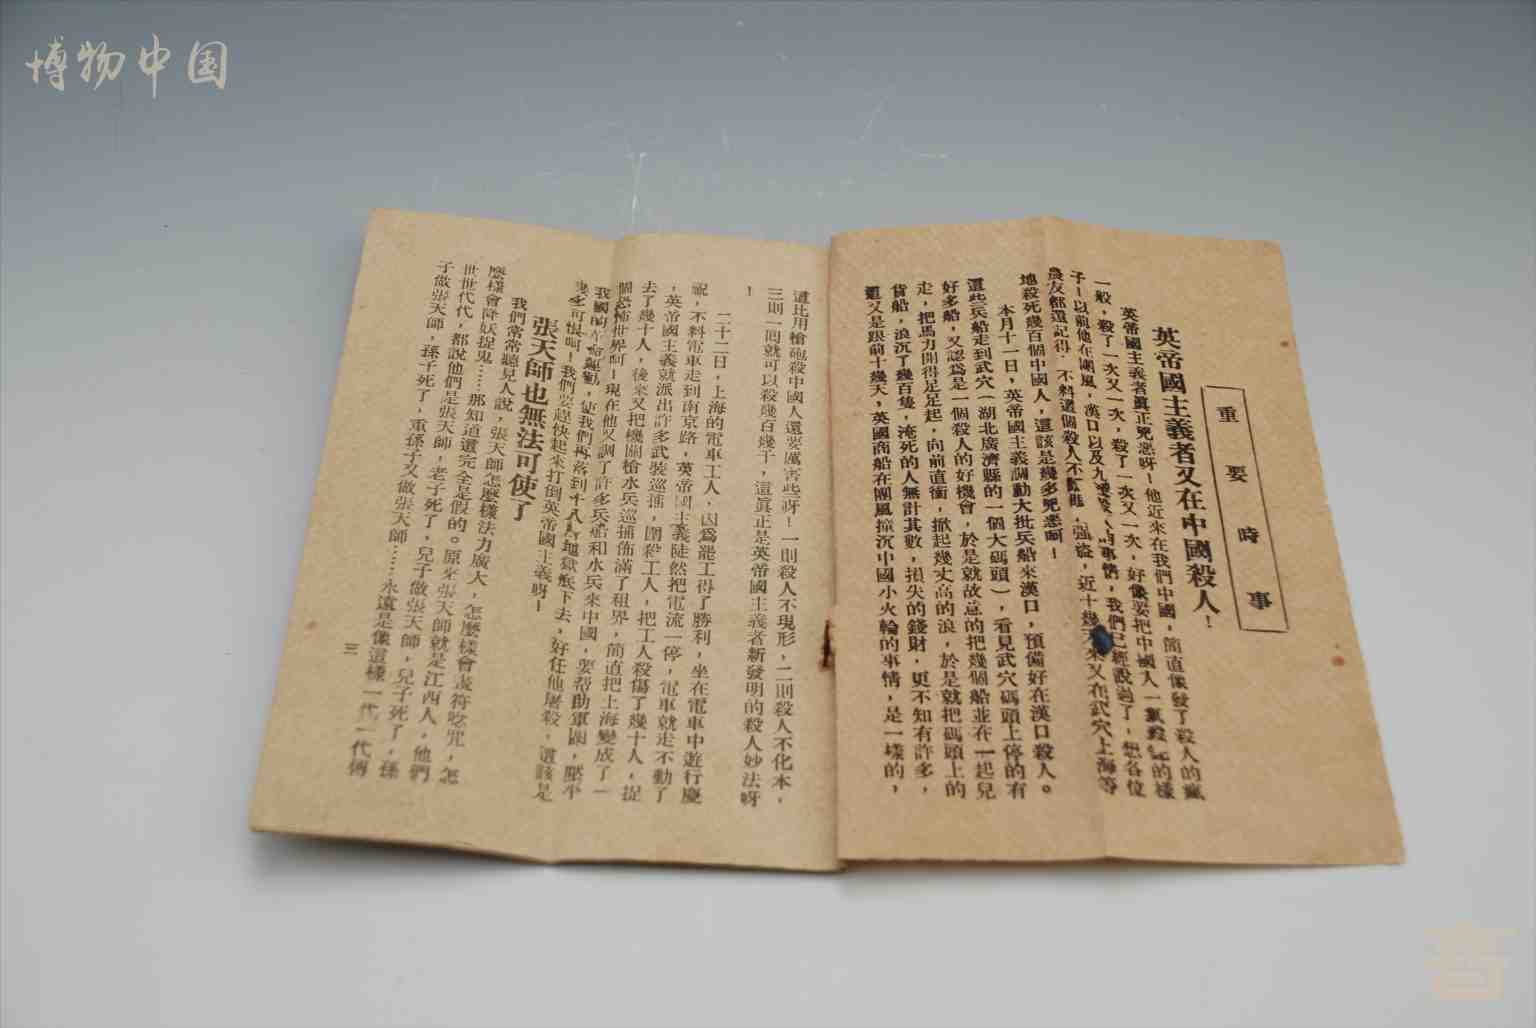 博物中国
重要時事
英帝國主義者又在中國殺人！
英帝國主義者眞正兇惡呀！他近來在我們中國，簡直像發了殺人的瘋
一般，殺了一次又一次，殺了一次又一次，好像要把中國人一氣殺完的樣
子！以前他在團風，漢口以及九江殺人的事情，我們已經說過了，想各位
農友都還記得．不料這個殺人不眨眼，强盜，近十幾天來又在武穴上海等
地殺死幾百個中國人，這該是幾多兇惡呵！
本月十一日，英帝國主義調動大批兵船來漢口，預備好在漢口殺人。
這些兵船走到武穴（湖北廣濟縣的一個大碼頭），看見武穴碼頭上停的有
好多船，又認爲是一個殺人的好機會，於是就故意的把幾個船並在一起兒
走，把馬力開得足足起，向前直衝，掀起幾丈高的浪，於是就把碼頭上的
貨船，浪沉了幾百隻，淹死的人無計其數，損失的錢財，更不知有許多，
這又是跟前十幾天，英國商船在團風撞沉中國小火輪的事情，是一樣的，
這比用槍砲殺中國人還要厲害些呀！一則殺人不現形，二則殺人不化本，
三則一回就可以殺幾百幾千，這眞正是英帝國主義者新發明的殺人妙法呀
！
二十二日，上海的電車工人，因爲罷工得了勝利，坐在電車中遊行慶
祝，不料電車走到南京路，英帝國主義陡然把電流一停，電車就走不動了
，英帝國主義就派出許多武裝巡捕，圍殺工人，把工人殺傷了幾十人，捉
去了幾十人，後來又把機關槍水兵巡捕佈滿了租界，簡直把上海變成了一
個恐怖世界呵！現在他又調了許多兵船和水兵來中國，要帮助軍閥，壓平
我國的革命運動，使我們再落到十八層地獄底下去，好任他屠殺，這該是
幾多可恨呵！我們要趕快起來打倒英帝國主義呀！
張天師也無法可使了
我們常常聽見人說，張天師怎麼樣法力廣大，怎麼樣會畫符唸咒，怎
麼樣會降妖捉鬼……那知道這完全是假的。原來張天師就是江西人，他們
世世代代，都說他們是張天師，老子死了，兒子做張天師，兒子死了，孫
子做張天師，孫子死了，重孫子又做張天師……永遠是像這樣一代一代傳
三